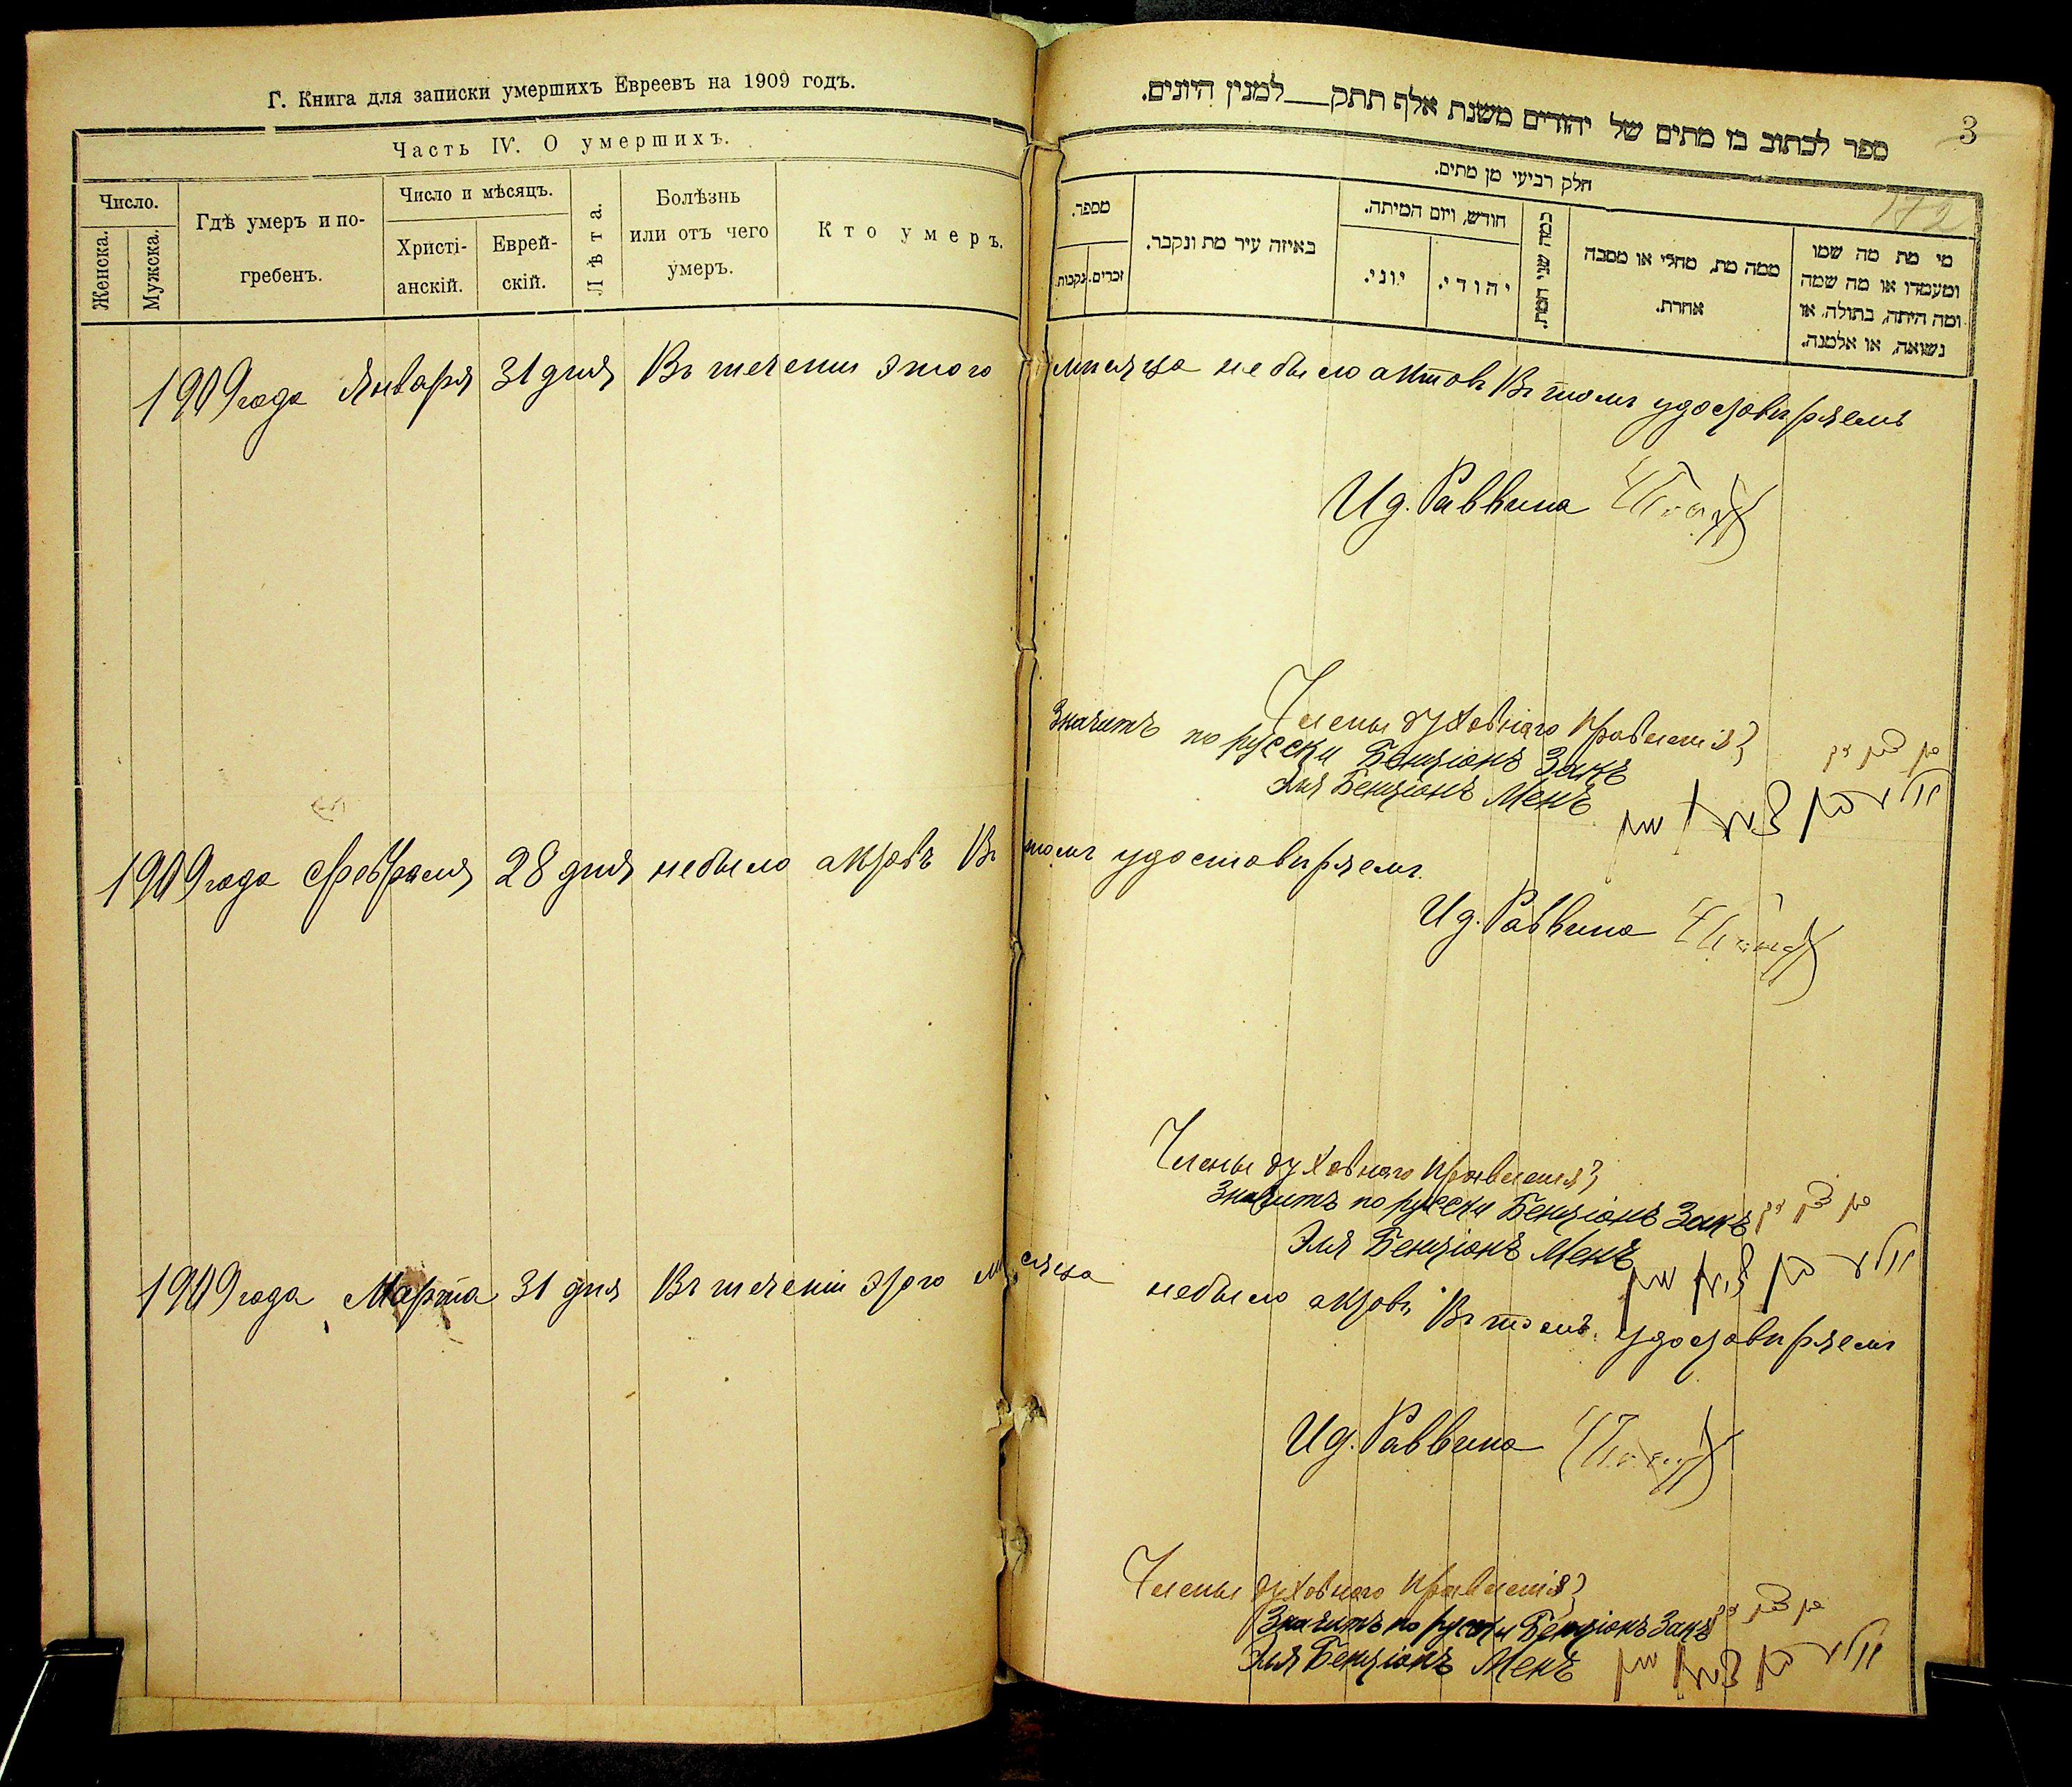 Г. Книга для записки умершихъ Евреевъ на 1909 годъ.
Часть IV. О умершихъ.
Число.
Женска.
Мужска.
Гдѣ умеръ и по-
гребенъ.
Число и мѣсяцъ.
Христі-
анскій.
Еврей-
скій.
Лѣта.
Болѣзнь
или отъ чего
умеръ.
Кто умеръ.
ספר לכתוב בו מתים של יהודים משנת אלף תתק למנין היונים.
3
172
חלק רביעי מן מתים.
מספר.
נקבות.
זכרים.
באיזה עיר מת ונקבר.
חודש, ויום המיתה.
יוני.
יהודי.
כמה שני המת.
ממה מת, מחלי או מסבה
אחרת.
מי מת מה שמו
ומעמדו או מה שמה
ומה היתה, בתולה, או
נשואה, או אלמנה.
1909 года Января 31 дня Въ теченіи этого мѣсяца не было актовъ Въ томъ удостовѣряемъ
И д. Раввина
Члены духовнаго правленія
Значитъ по русски Бенціонъ Закъ
Эля Бенціонъ Менъ
1909 года Февраля 28 дня небыло актовъ Въ томъ удостовѣряемъ
И д. Раввина
Члены духовнаго правленія
Значитъ по русски Бенціонъ Закъ
Эля Бенціонъ Менъ
1909 года Марта 31 дня Въ теченіи этого мѣсяца небыло актовъ Въ томъ удостовѣряемъ
И д. Раввина
Члены духовнаго правленія
Значитъ по русски Бенціонъ Закъ
Эля Бенціонъ Менъ